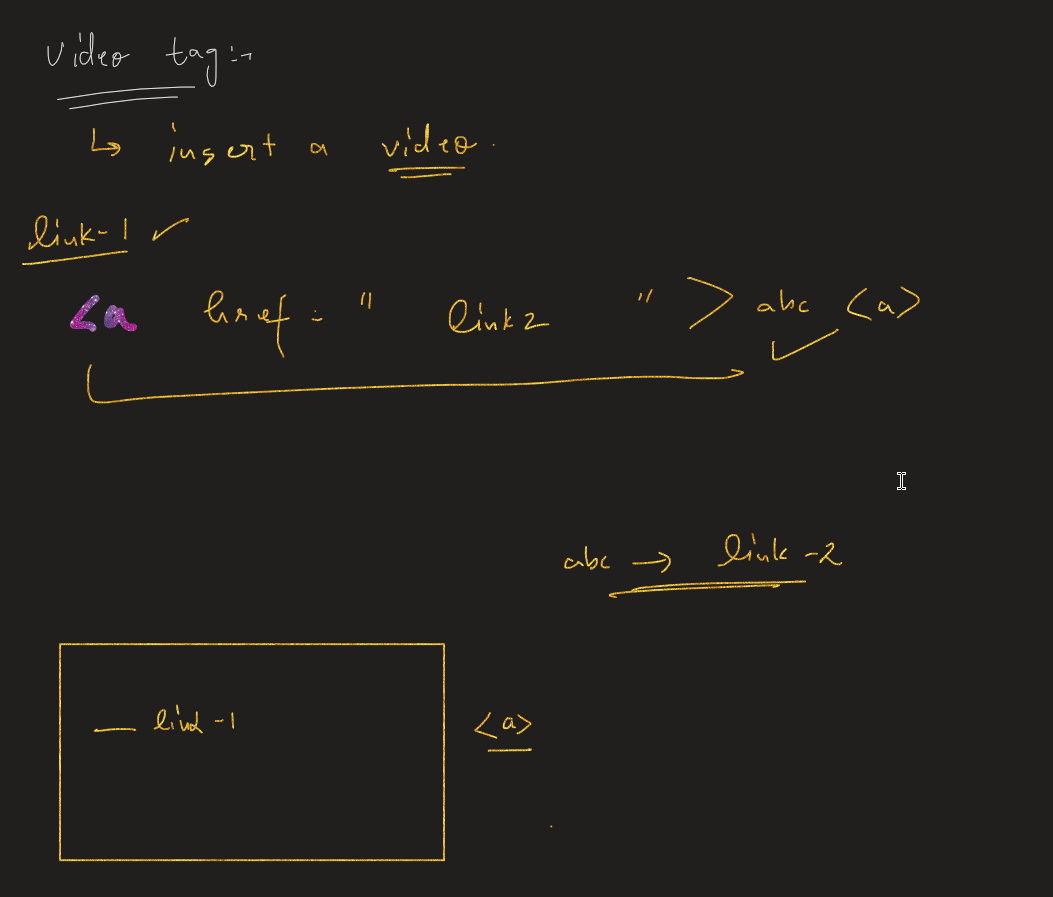 video tag:-
↳ insert a video.
link-1 ✓
<a href = " link2 " > abc <a>
abc → link -2
— link -1 <a>